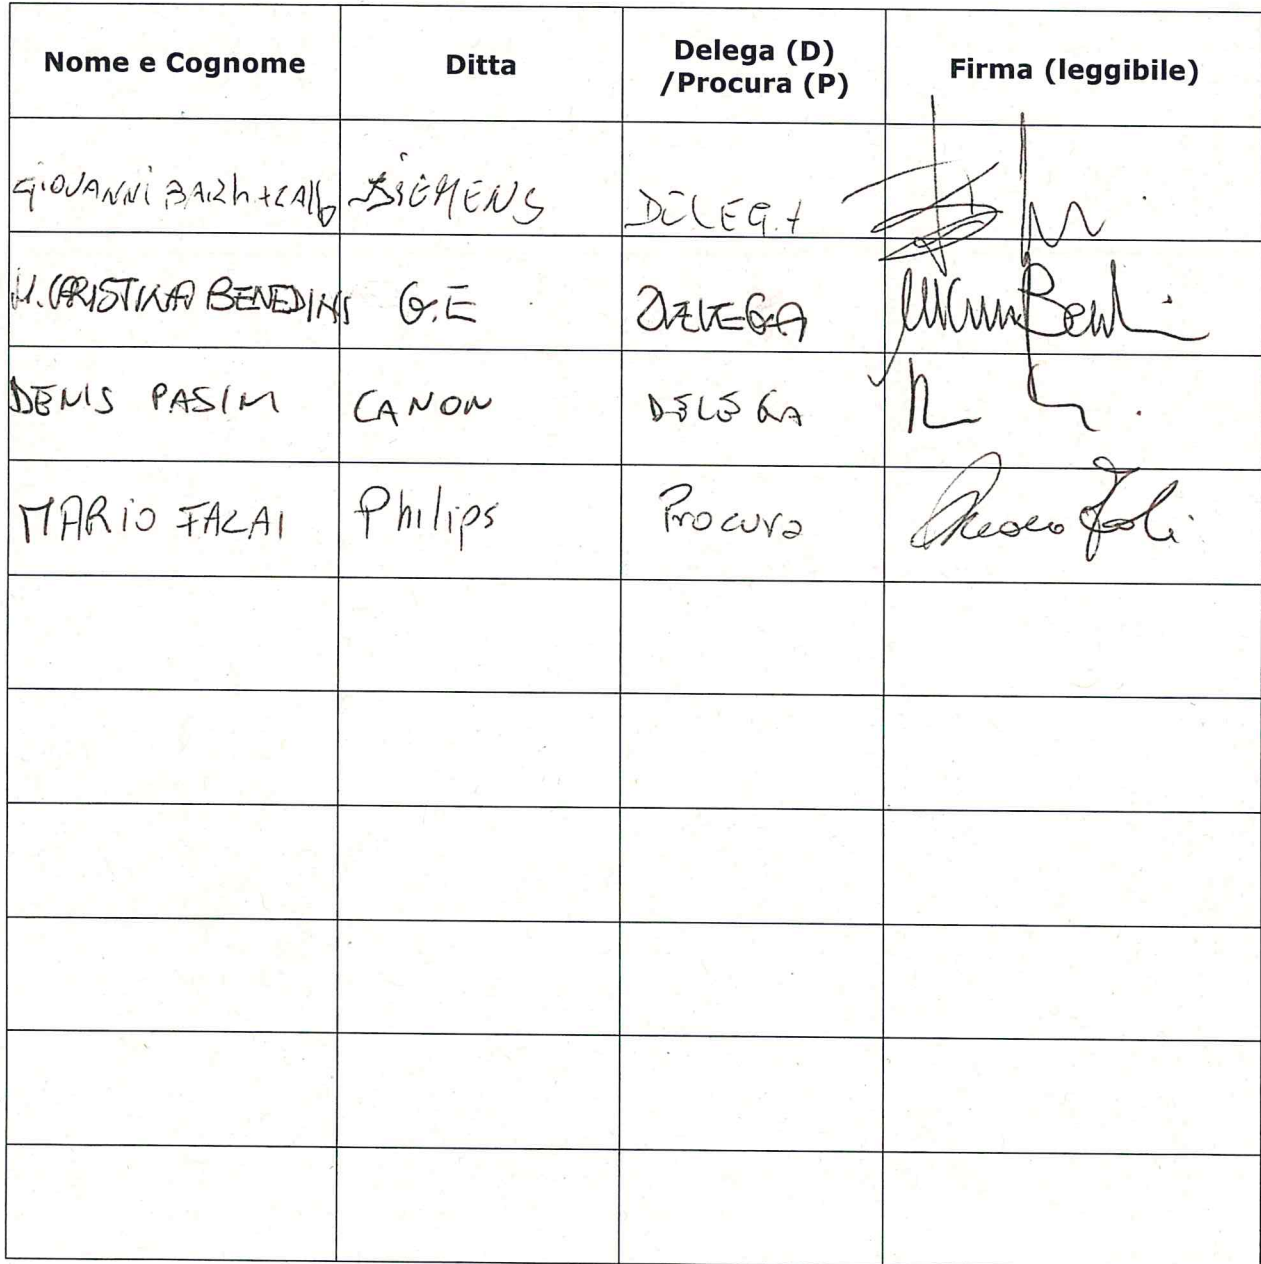 Nome e Cognome Ditta Delega (D) /Procura (P) Firma (leggibile)
GiOVANNi SIEMENS DELEGA
M. CRISTINA BENEDINI G.E DELEGA
DENIS PASINI CANON DELEGA
MARiO FALAI Philips Procura